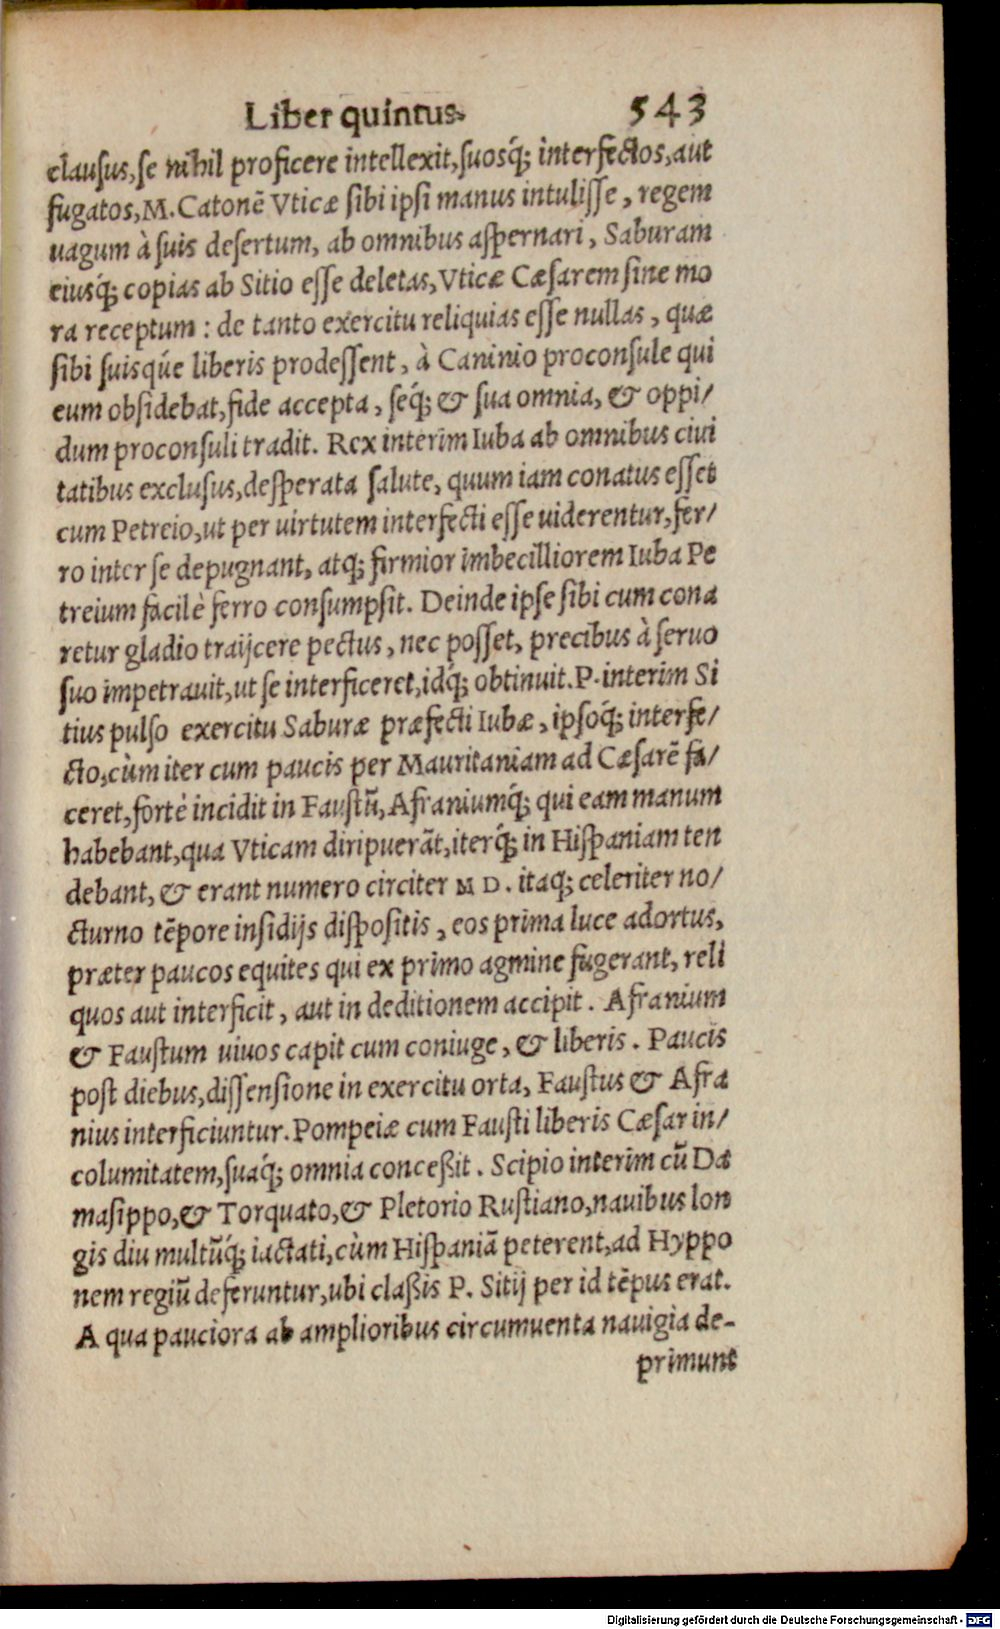 Liber quintus. 543
clauſus, ſe nihil proficere intellexit, ſuosq́; interfectos, aut
fugatos, M. Catonē Vticæ ſibi ipſi manus intuliſſe, regem
uagum à ſuis deſertum, ab omnibus aſpernari, Saburam
eiusq́; copias ab Sitio eſſe deletas, Vticæ Cæſarem ſine mo
ra receptum: de tanto exercitu reliquias eſſe nullas, quæ
ſibi ſuisq́ue liberis prodeſſent, à Caninio proconſule qui
eum obſidebat, fide accepta, ſeq́; & ſua omnia, & oppi/
dum proconſuli tradit. Rex interim Iuba ab omnibus ciui
tatibus excluſus, deſperata ſalute, quum iam conatus eſſet
cum Petreio, ut per uirtutem interfecti eſſe uiderentur, fer/
ro inter ſe depugnant, atq; firmior imbecilliorem Iuba Pe
treium facilè ferro conſumpſit. Deinde ipſe ſibi cum cona
retur gladio traijcere pectus, nec poſſet, precibus à ſeruo
ſuo impetrauit, ut ſe interficeret, idq́; obtinuit. P. interim Si
tius pulſo exercitu Saburæ præfecti Iubæ, ipſoq́; interfe/
cto, cùm iter cum paucis per Mauritaniam ad Cæſarē fa/
ceret, fortè incidit in Fauſtū, Afraniumq́; qui eam manum
habebant, qua Vticam diripuerāt, iterq́; in Hiſpaniam ten
debant, & erant numero circiter M D. itaq; celeriter no/
cturno tēpore inſidijs diſpoſitis, eos prima luce adortus,
præter paucos equites qui ex primo agmine fugerant, reli
quos aut interficit, aut in deditionem accipit. Afranium
& Fauſtum uiuos capit cum coniuge, & liberis. Paucis
poſt diebus, diſſenſione in exercitu orta, Fauſtus & Afra
nius interficiuntur. Pompeiæ cum Fauſti liberis Cæſar in/
columitatem, ſuaq́; omnia conceßit. Scipio interim cū Da
maſippo, & Torquato, & Pletorio Ruſtiano, nauibus lon
gis diu multūq́; iactati, cùm Hiſpaniā peterent, ad Hyppo
nem regiū deferuntur, ubi claßis P. Sitij per id tēpus erat.
A qua pauciora ab amplioribus circumuenta nauigia de-
primunt
Digitalisierung gefördert durch die Deutsche Forschungsgemeinschaft - DFG